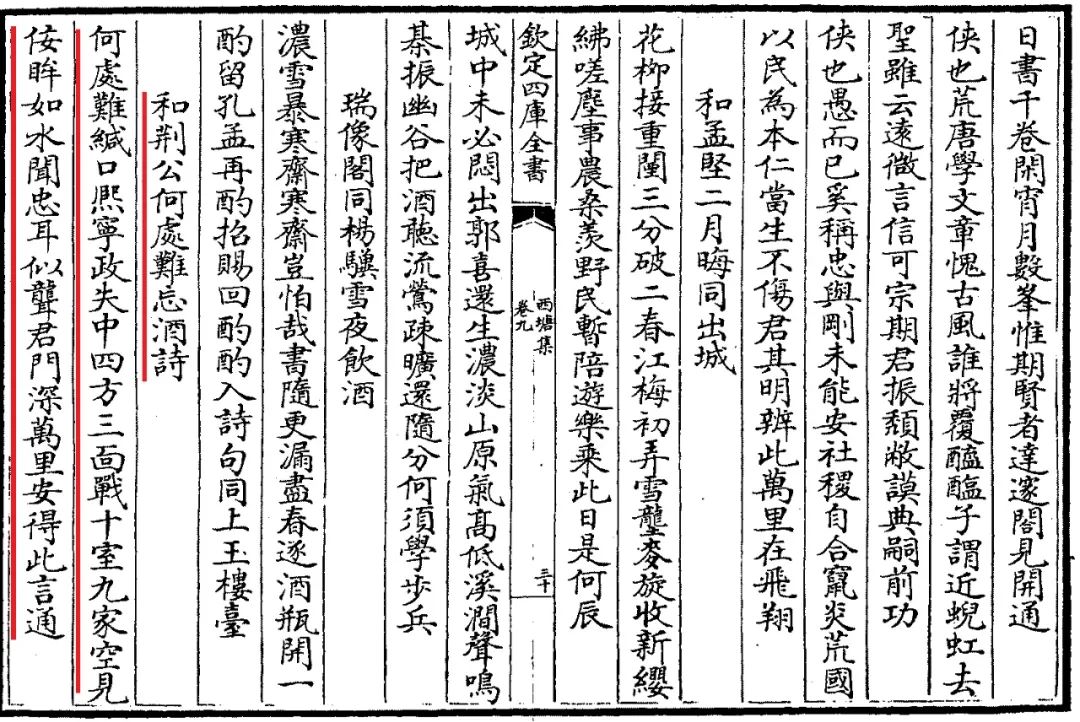 日書千卷閑宵月數峯惟期賢者達邃閣見開通
俠也荒唐學文章愧古風誰將覆醢醢子謂近蜺虹去
聖雖云遠微言信可宗期君振頹敝謨典嗣前功
俠也愚而已奚稱忠與剛未能安社稷自合竄炎荒國
以民為本仁當生不傷君其明辨此萬里在飛翔
和孟堅二月晦同出城
花柳接重闉三分破二春江梅初弄雪壟麥旋收新纓
紼嗟塵事農桑羡野民暫陪遊樂乘此日是何辰
欽定四庫全書
西塘集
卷九
三十
城中未必悶出郭喜還生濃淡山原氣高低溪澗聲鳴
棊振幽谷把酒聴流鶯疎曠還隨分何須學步兵
瑞像閣同楊驥雪夜飲酒
濃雪暴寒齋寒齋豈怕哉書隨更漏盡春逐酒瓶開一
酌留孔孟再酌招賜回酌酌入詩句同上玉樓臺
和荆公何處難忘酒詩
何處難緘口熈寧政失中四方三靣戰十室九家空見
佞眸如水聞忠耳似聾君門深萬里安得此言通